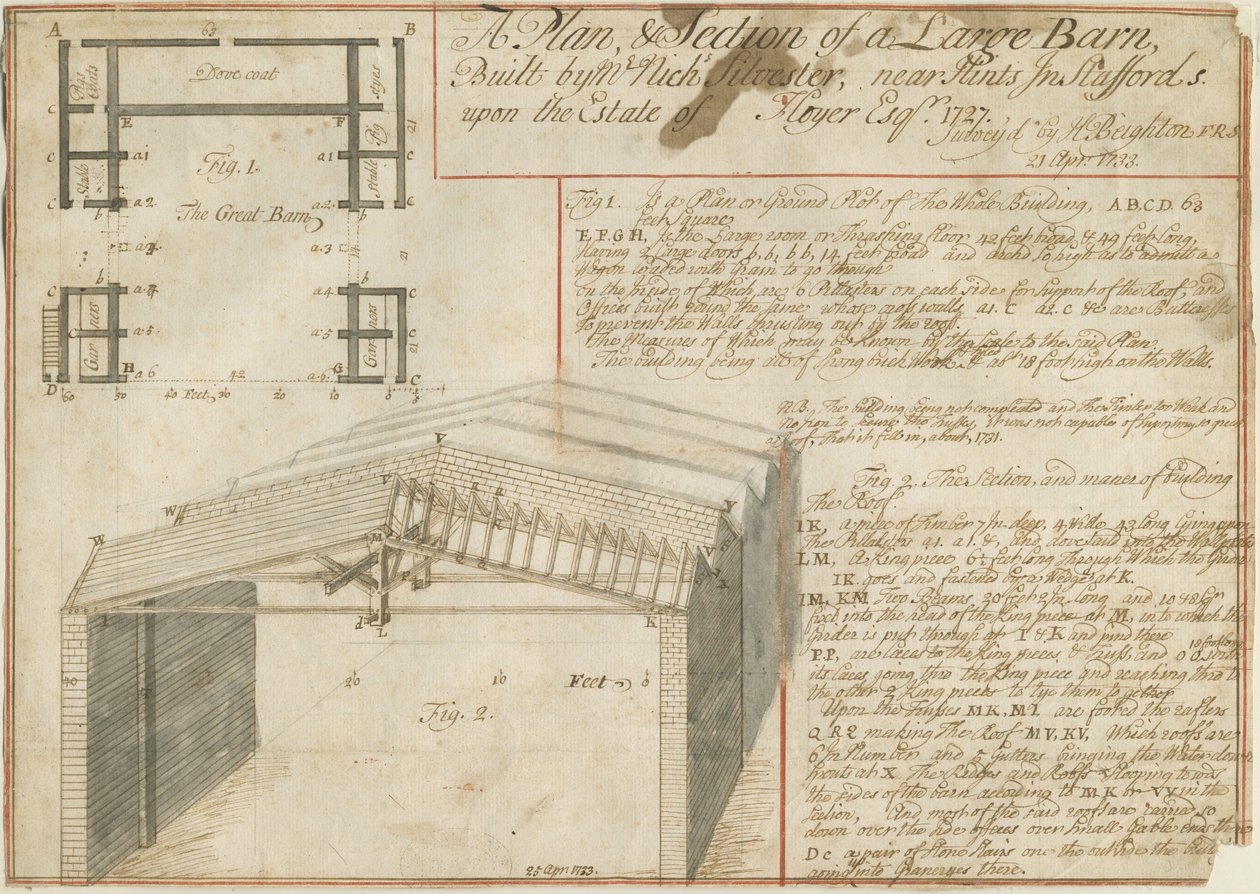 A Plan, & Section of a Large Barn,
Built by Mr. Nichs. Silvester, near Hints In Staffords.
upon the Estate of Floyer Esqr. 1727.
Survey'd by H. Beighton F.R.S.
21 Apr. 1733.
A 63 B
Pigs Coats
Dove coat
Styes
Pig
C C
E F
21
C a1 a1 C
Stable Stable
Fig. 1.
C a.2 a.2 C
b b
The Great Barn
a.3
14
21
b b
C a.4 a.4 C
Garners Garners
C a.5 a.5
21
H G
D a.6 a.6 C
42
60 50 40 Feet 30 20 10 0 5
Fig 1. Is a Plan or Ground Plot of The Whole Building, A B C D 63
feet Square
E, F, G H, Is the Large room or Thrashing floor 42 feet broad & 49 feet long,
Having 2 large doors b, b, b b, 14 feet broad and arch'd so high as to admit a
Wagon loaded with Grain to go through
on the inside of Which are 6 Pillasters on each side for Support of the Roof, and
Offices built round the same whose cross walls a1. C a2. C &c are Buttresses
to prevent the Walls thrusting out by the roof.
The Measures of Which may be known by the scale to the said Plan
The building being all of strong brick Work 18 foot high on the Walls.
N.B., The building being not compleated and The Timber too Weak and
No Iron to secure the Trusses, it was not capable of suporting so great
a roof, That it fell in, about, 1731.
Fig. 2. The Section, and maner of building
The Roof.
IK, a piece of Timber 7 In deep, 4 Wide 43 long lying upon
The Pillasters a1. a1. &, and dove taild into the Wall plate
LM, a King piece 6½ feet long Through Which the Girder
IK. goes and fastened by a Wedge at K.
IM, KM Two Beams 20 feet 2 In long and 10 & 8
fixt into the head of the King piece at M, in to which the
Girder is put through at I & K and pind there
P.P, are laces to the King pieces & Truss, and O O 18 foot long with
its laces going thro the King piece and reaching thro to
the other 2 King pieces to tye them to gether
Upon the Trusses MK, MI are footed the rafters
Q R 2 making The Roof MV, KV, Which roofs are
6 In Number and 5 Gutters bringing the Water down
spouts at X The Ridges and Roofs sloping towards
the sides of the barn according to MK or VV in the
Section, And most of the said roofs are caried so
down over the side offices over Small Gable ends there
D c a pair of Stone Stairs on the outside the building
going into Granerys there.
V
W
W
V
V
V
M
R
Q
P
X
d
I L K
T
40
20 10 Feet 0
Fig. 2.
25 Apr. 1733.